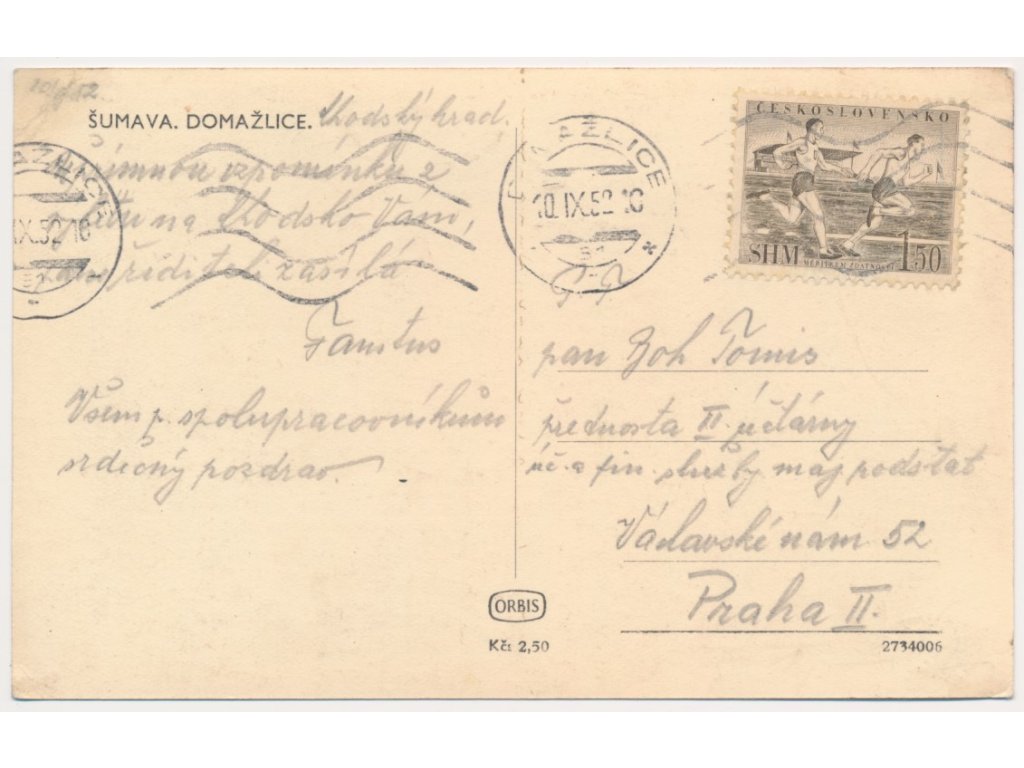 10/9 52
ŠUMAVA. DOMAŽLICE. Chodský hrad.
Upřímnou vzpomínku z
výletu na Chodsko Vám,
pane řediteli zasílá
Faustus
Všem p. spolupracovníkům
srdečný pozdrav.
DOMAŽLICE
10.IX.52-10
ČESKOSLOVENSKO
SHM
MĚŘÍTKEM ZDATNOSTI
1.50
P. T.
pan Boh Tomis
přednosta II účtárny
úč. a fin. služby maj podstat
Václavské nám 52
Praha II.
ORBIS
Kčs 2,50
2734006